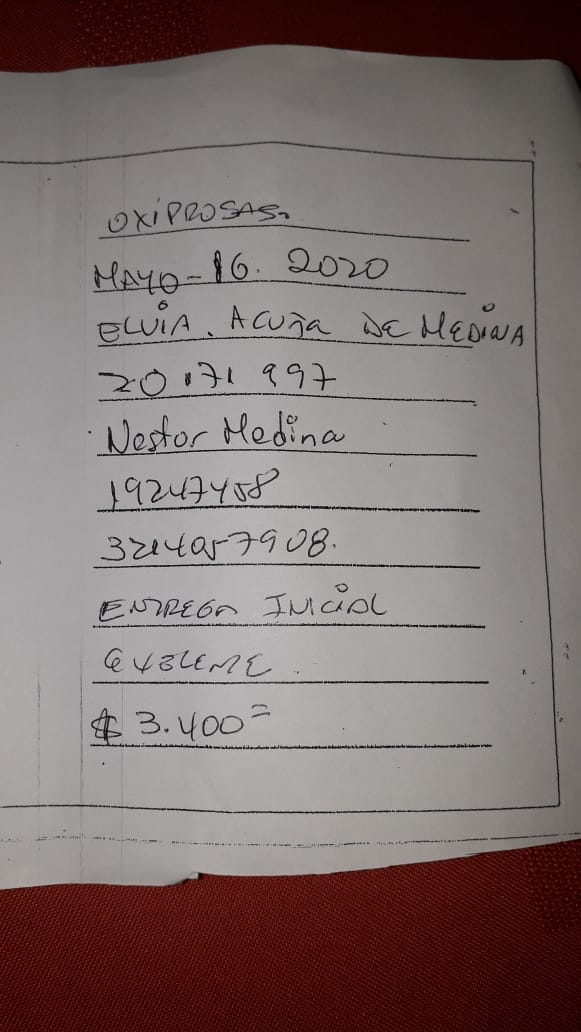 OXIPROSAS.
MAYO-16. 2020
ELVIA. ACUÑA DE MEDINA
20.171 997
Nestor Medina
19247458
3214057908.
ENTREGA INICIAL
$ 3.400=